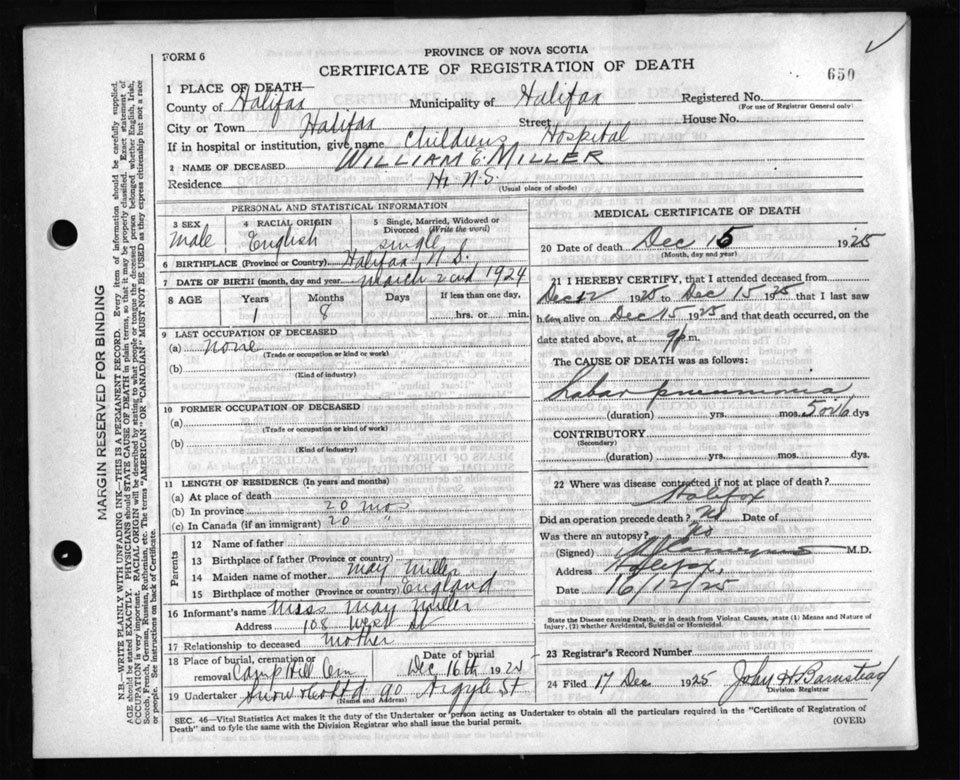 FORM 6
PROVINCE OF NOVA SCOTIA
CERTIFICATE OF REGISTRATION OF DEATH
650
1 PLACE OF DEATH—
County of Halifax Municipality of Halifax Registered No.
(For use of Registrar General only)
City or Town Halifax Street House No.
If in hospital or institution, give name Childrens Hospital
2 NAME OF DECEASED WILLIAM E. MILLER
Residence Hx N.S.
(Usual place of abode)
PERSONAL AND STATISTICAL INFORMATION
3 SEX 4 RACIAL ORIGIN 5 Single, Married, Widowed or Divorced (Write the word)
Male English single
6 BIRTHPLACE (Province or Country) Halifax N.S.
7 DATE OF BIRTH (month, day and year) March 2nd 1924
8 AGE Years Months Days If less than one day,
1 8 hrs. or min.
9 LAST OCCUPATION OF DECEASED
(a) none
(Trade or occupation or kind or work)
(b)
(Kind of industry)
10 FORMER OCCUPATION OF DECEASED
(a)
(Trade or occupation or kind of work)
(b)
(Kind of industry)
11 LENGTH OF RESIDENCE (In years and months)
(a) At place of death
(b) In province 20 mos
(c) In Canada (if an immigrant) 20 "
Parents
12 Name of father
13 Birthplace of father (Province or country)
14 Maiden name of mother May Miller
15 Birthplace of mother (Province or country) England
16 Informant's name Miss May Miller
Address 108 West St
17 Relationship to deceased mother
18 Place of burial, cremation or removal Camp Hill Cem Dec 16th 1925
19 Undertaker Snow & Co Ltd 90 Argyle St
(Name and Address)
MEDICAL CERTIFICATE OF DEATH
20 Date of death Dec 15 1925
(Month, day and year)
21 I HEREBY CERTIFY, that I attended deceased from
Dec 12 1925 to Dec 15 1925 that I last saw
him alive on Dec 15 1925 and that death occurred, on the
date stated above, at 9 p m.
The CAUSE OF DEATH was as follows:
Lobar pneumonia
(duration) yrs. mos. 5 or 6 dys
CONTRIBUTORY
(Secondary)
(duration) yrs. mos. dys.
22 Where was disease contracted if not at place of death?
Halifax
Did an operation precede death? No Date of
Was there an autopsy? No
(Signed) M.D.
Address Halifax
Date 16/12/25
State the Disease causing Death, or in death from Violent Causes, state (1) Means and Nature of Injury, (2) whether Accidental, Suicidal or Homicidal.
23 Registrar's Record Number
24 Filed 17 Dec 1925 John H Barnstead
Division Registrar
SEC. 46—Vital Statistics Act makes it the duty of the Undertaker or person acting as Undertaker to obtain all the particulars required in the "Certificate of Registration of
Death" and to fyle the same with the Division Registrar who shall issue the burial permit.
(OVER)
MARGIN RESERVED FOR BINDING
N.B.—WRITE PLAINLY WITH UNFADING INK—THIS IS A PERMANENT RECORD. Every item of information should be carefully supplied.
AGE should be stated EXACTLY. PHYSICIANS should STATE CAUSE OF DEATH in plain terms, so that it may be properly classified. Exact statement of
OCCUPATION is very important. RACIAL ORIGIN will be described by stating to what people or tongue the deceased person belonged whether English, Irish,
Scotch, French, German, Russian, Ruthenian, etc. The terms "AMERICAN" OR "CANADIAN" MUST NOT BE USED as they express citizenship but not a race
or people. See instructions on back of Certificate.